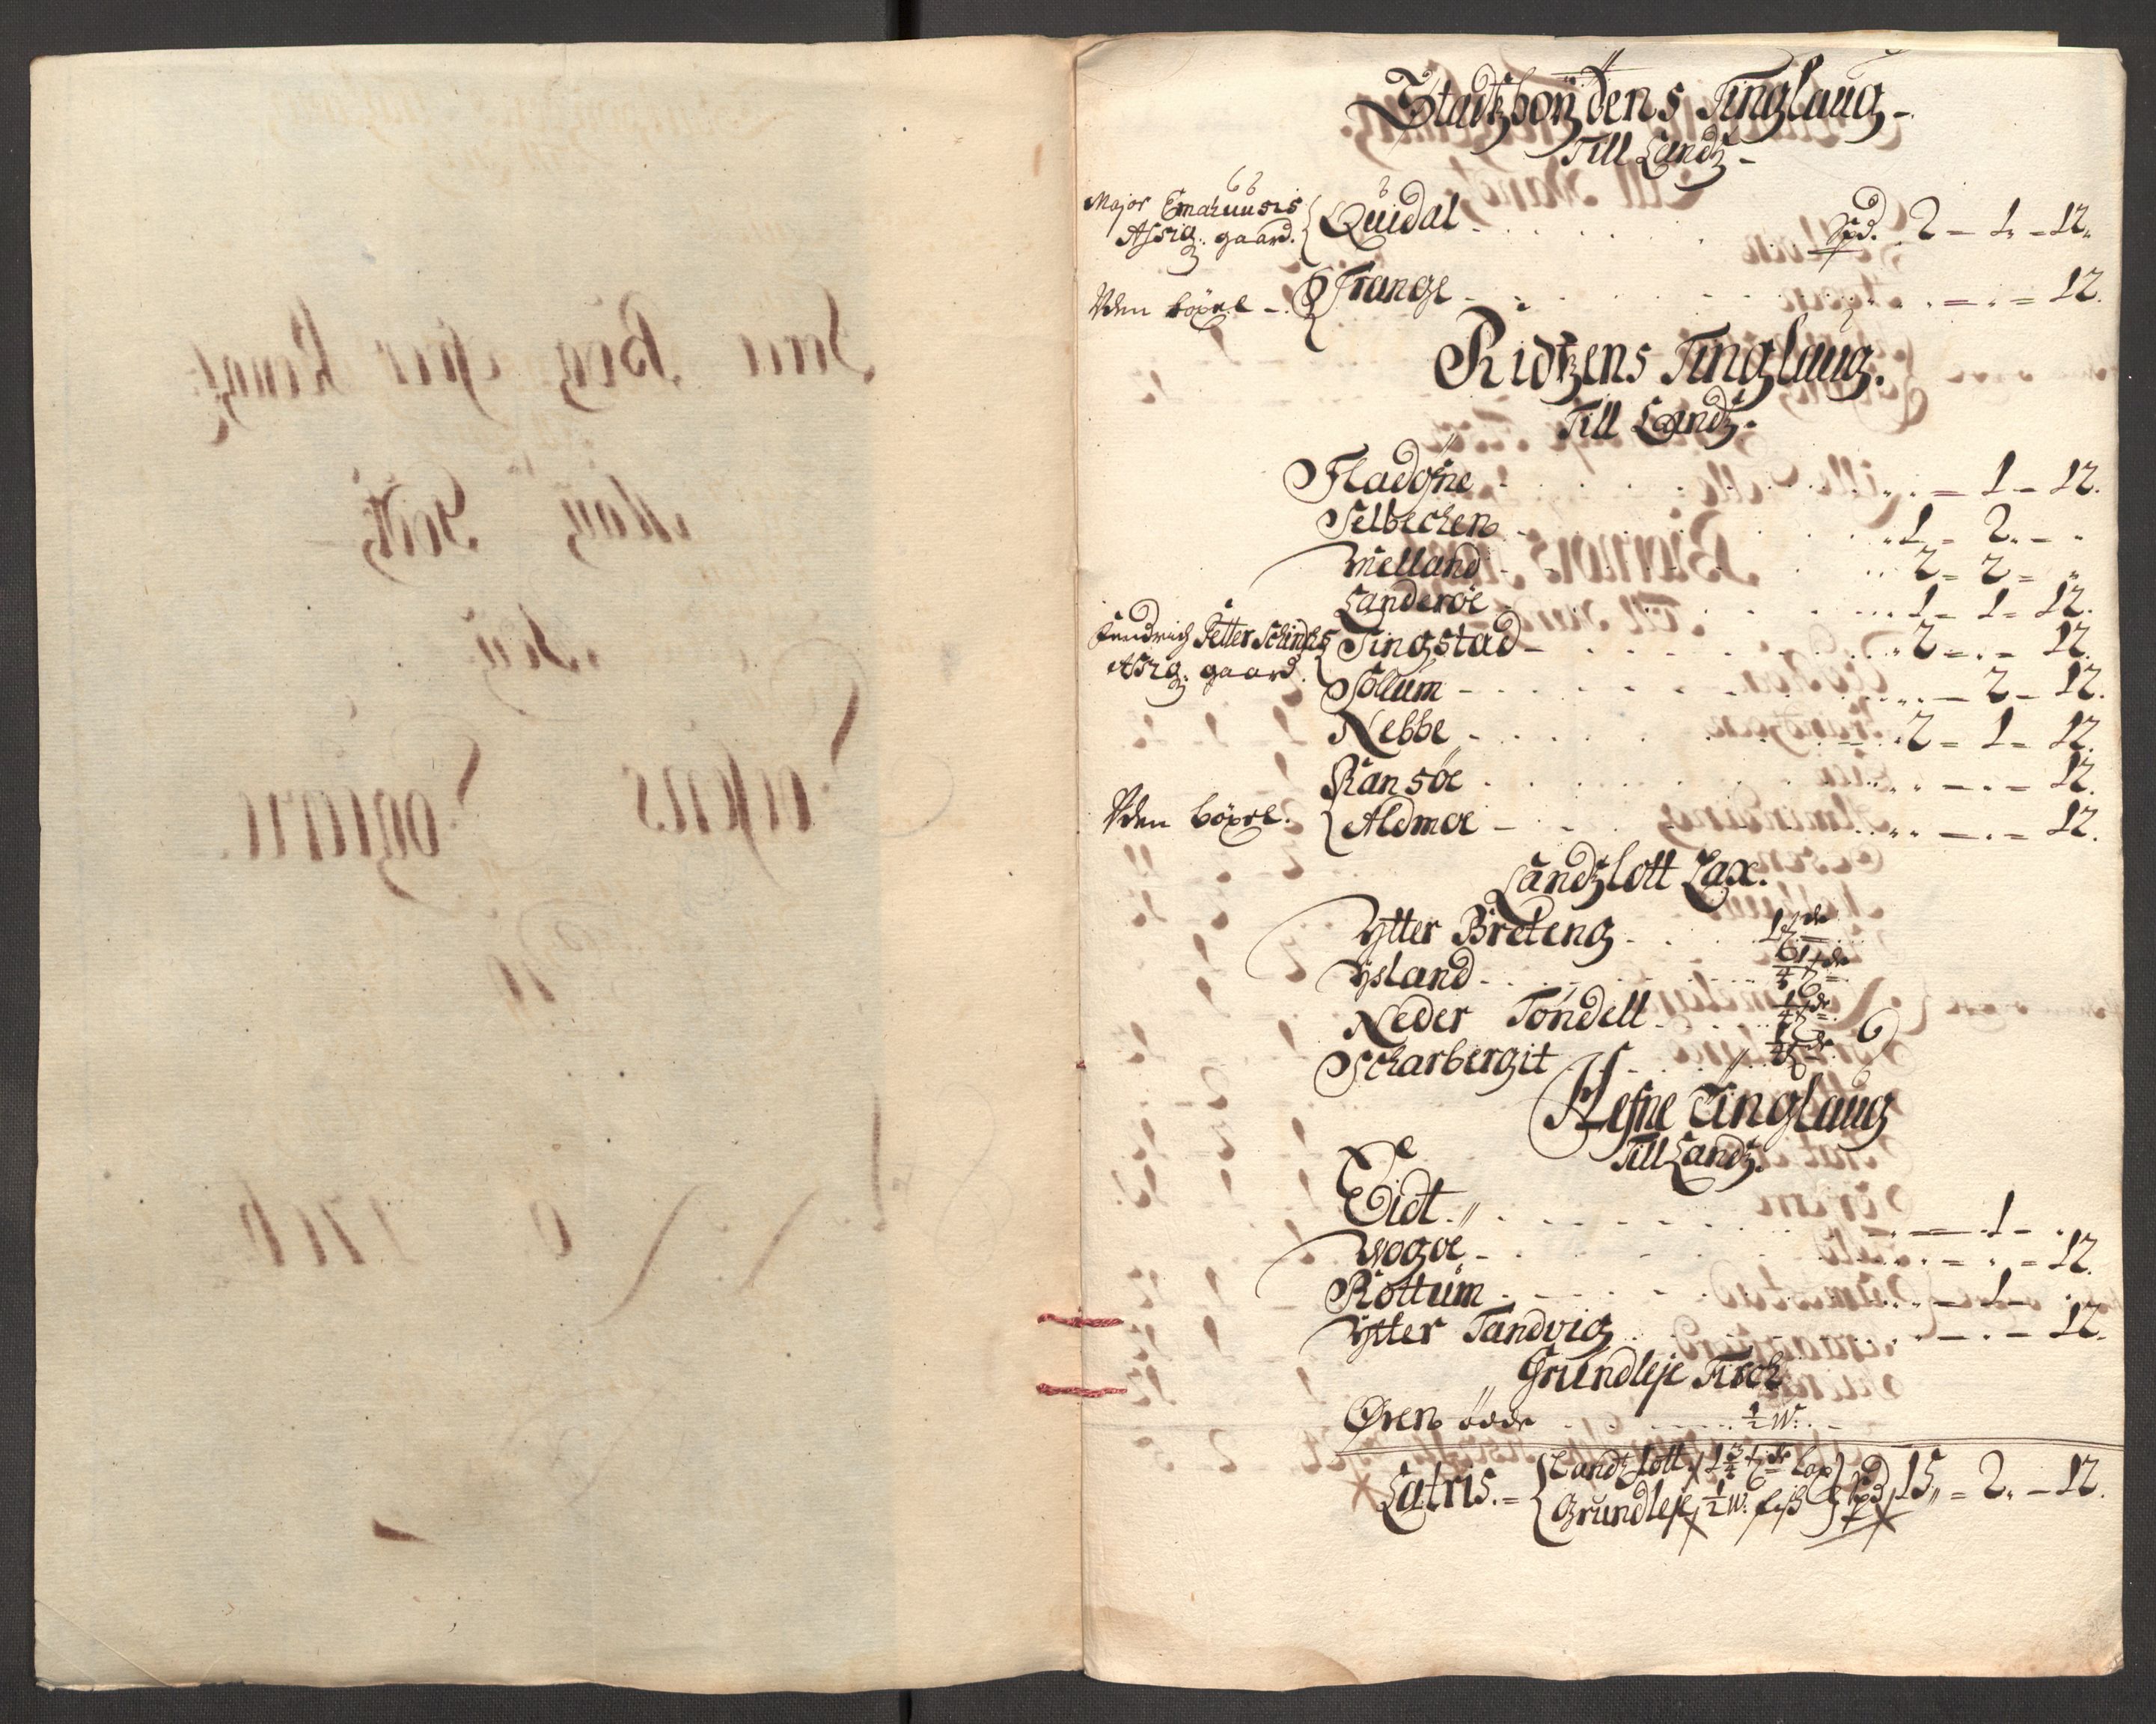 Stadtzböÿdens Tinglaug
Till Landtz
Major Emahuusis Assig: gaard. { Quidal . . . Spd. 2 - 1 - 12
Vden böxel - { Trange . . . - - 12
Ridtzens Tinglaug.
Till Landtz.
Fladøfne . . . - 1 - 12.
Selbechen . . . 1 - 2 - -
Melland . . . 2 - 2 -
Landerøe . . . 1 - 1 - 12.
Fendrich Petter Schinches Assig: gaard. { Tingstad - . . . 2 - - 12.
Sollum - . . . - 2 - 12.
Nebbe - . . . 2 - 1 - 12.
Ransøe . . . - - 12.
Vden böxel. { Aldmoe - . . . - - 12.
Landtzlott Lax.
Ytter Breteng - . . 1
Ysland - . . 1/4
Neder Tøndell . . . 1/4
Scharbergit . . . 1/4
Hefne Tinglaug
Till Landtz.
Eidt . . . - 1 -
Wogoe - . . . - - 12.
Rottum . . . - 1 -
Ytter Tandvig . . . - - 12.
Grundleje Fisch
Øren . . . 1/2 W:
Latris. = { Landtzlott, 1 3/4 Lax
Grundleje, 1/2 W: fisk } Spd 15 - 2 - 12.